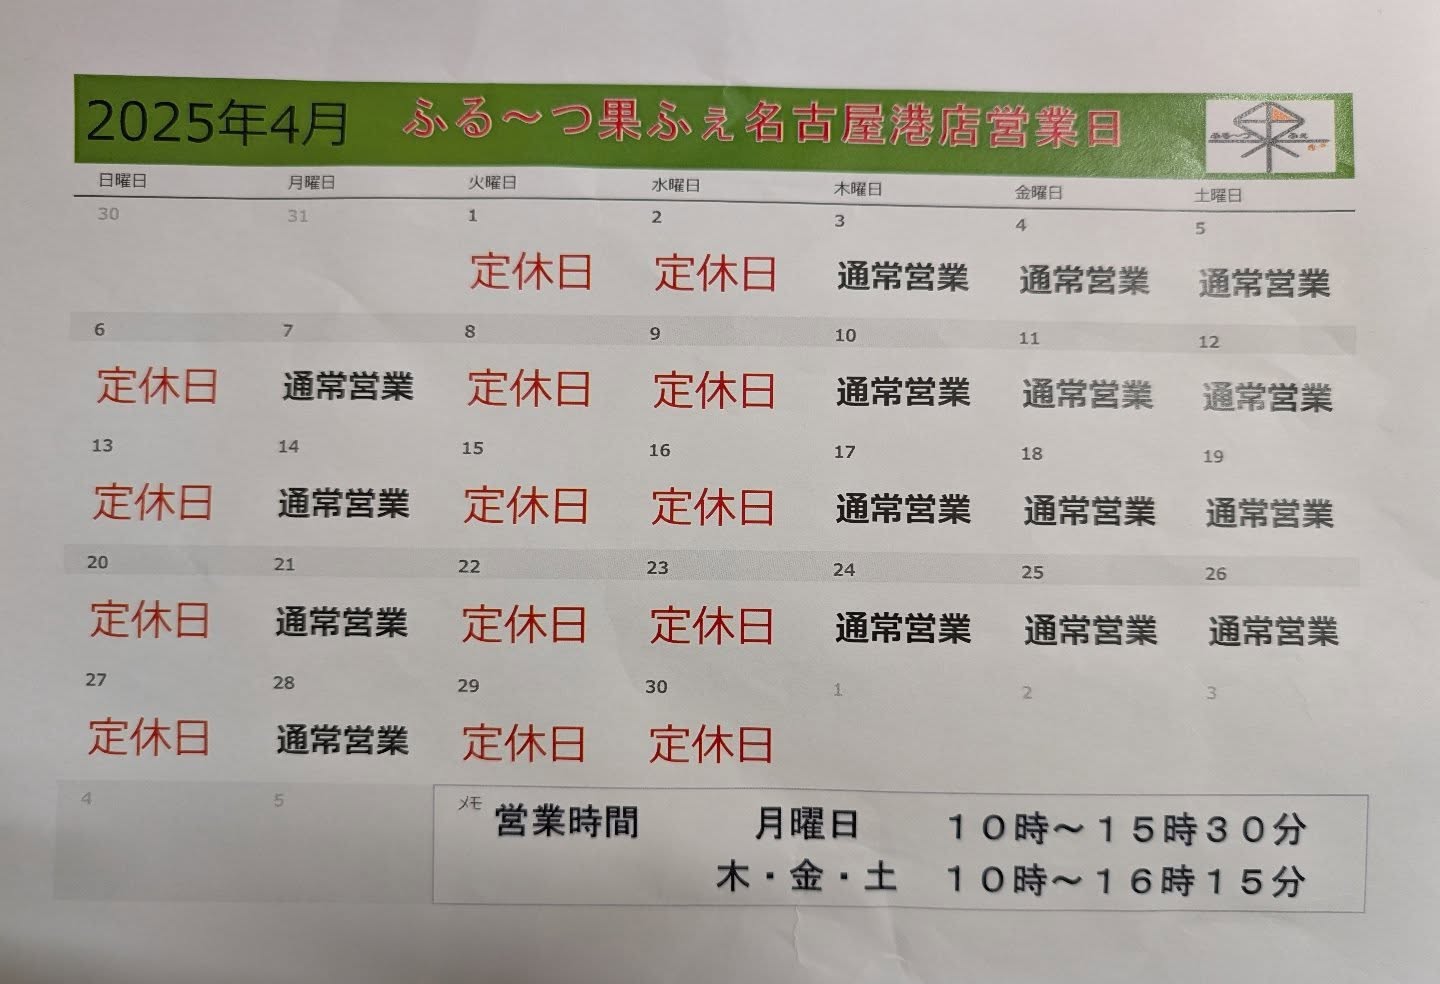 2025年4月 ふる～つ果ふぇ名古屋港店営業日
日曜日 月曜日 火曜日 水曜日 木曜日 金曜日 土曜日
30 31 1 2 3 4 5
定休日 定休日 通常営業 通常営業 通常営業
6 7 8 9 10 11 12
定休日 通常営業 定休日 定休日 通常営業 通常営業 通常営業
13 14 15 16 17 18 19
定休日 通常営業 定休日 定休日 通常営業 通常営業 通常営業
20 21 22 23 24 25 26
定休日 通常営業 定休日 定休日 通常営業 通常営業 通常営業
27 28 29 30 1 2 3
定休日 通常営業 定休日 定休日
4 5
メモ 営業時間 月曜日 １０時～１５時３０分
木・金・土 １０時～１６時１５分